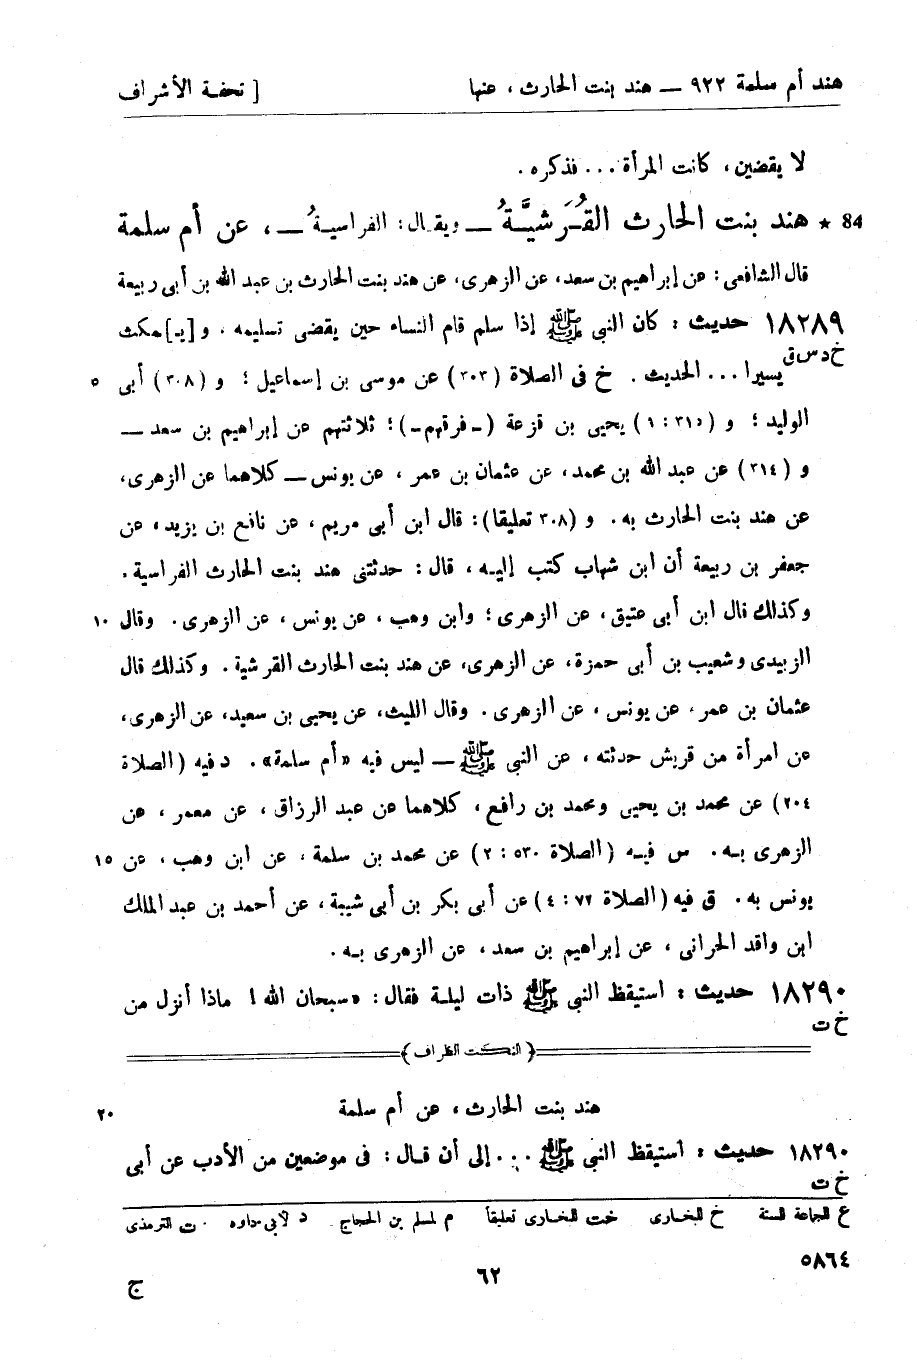 هند أم سلمة ٩٢٢ — هند بنت الحارث ، عنها [ تحفة الأشراف
لا يقضين ، كانت المرأة ... فذكره .
84 * هند بنت الحارث القُرَشيَّةُ — ويقال : الفراسيةُ — ، عن أم سلمة
قال الشافعي : عن إبراهيم بن سعد ، عن الزهرى ، عن هند بنت الحارث بن عبد الله بن أبى ربيعة
١٨٢٨٩ حديث : كان النبي ﷺ إذا سلم قام النساء حين يقضى تسليمه . و [يـ]ـمكث
خ د س ق
يسيرا ... الحديث . خ فى الصلاة (٣٠٣) عن موسى بن إسماعيل ؛ و (٣٠٨) أبى ٥
الوليد ؛ و (٣١٥ : ١) يحيى بن قزعة (-فرقهم-) ؛ ثلاثتهم عن إبراهيم بن سعد —
و (٣١٤) عن عبد الله بن محمد ، عن عثمان بن عمر ، عن يونس — كلاهما عن الزهرى ،
عن هند بنت الحارث به . و (٣٠٨ تعليقا) : قال ابن أبى مريم ، عن نافع بن يزيد ، عن
جعفر بن ربيعة أن ابن شهاب كتب إليه ، قال : حدثتنى هند بنت الحارث الفراسية .
وكذلك قال ابن أبى عتيق ، عن الزهرى ؛ وابن وهب ، عن يونس ، عن الزهرى . وقال ١٠
الزبيدى وشعيب بن أبى حمزة ، عن الزهرى ، عن هند بنت الحارث القرشية . وكذلك قال
عثمان بن عمر ، عن يونس ، عن الزهرى . وقال الليث ، عن يحيى بن سعيد ، عن الزهرى ،
عن امرأة من قريش حدثته ، عن النبي ﷺ — ليس فيه «أم سلمة» . د فيه (الصلاة
٢٠٤) عن محمد بن يحيى ومحمد بن رافع ، كلاهما عن عبد الرزاق ، عن معمر ، عن
الزهرى به . س فيه (الصلاة ٥٣٠ : ٢) عن محمد بن سلمة ، عن ابن وهب ، عن ١٥
يونس به . ق فيه (الصلاة ٧٢ : ٤) عن أبى بكر بن أبى شيبة ، عن أحمد بن عبد الملك
ابن واقد الحرانى ، عن إبراهيم بن سعد ، عن الزهرى به .
١٨٢٩٠ حديث : استيقظ النبي ﷺ ذات ليلة فقال : «سبحان الله ! ماذا أنزل من
خ ت
﴿ النكت الظراف ﴾
هند بنت الحارث ، عن أم سلمة ٢٠
١٨٢٩٠ حديث : استيقظ النبي ﷺ ... إلى أن قال : فى موضعين من الأدب عن أبى
خ ت
ع للجماعة الستة خ للبخارى خت للبخارى تعليقاً م لمسلم بن الحجاج د لأبى داود ت للترمذى
٥٨٦٤
٦٢
ج